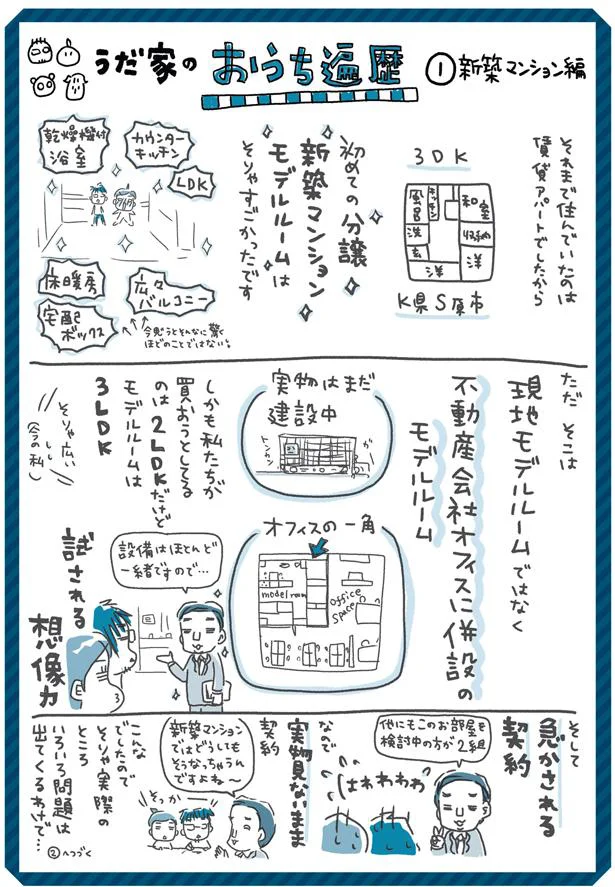 うだ家の おうち遍歴 ①新築マンション編
それまで住んでいたのは
賃貸アパートでしたから
3DK
風呂
キッチン
和室
洗
収納
玄
洋
洋
K県S原市
初めての分譲
新築マンション
モデルルームは
そりゃすごかったです
乾燥機付
浴室
カウンター
キッチン
LDK
床暖房
広々
バルコニー
宅配
ボックス
今思うとそんなに驚く
ほどのことではない。
ただ そこは
現地モデルルームではなく
不動産会社オフィスに併設の
モデルルーム
実物はまだ
建設中
トンカン
ガー
オフィスの一角
model room
office
space
しかも私たちが
買おうとしてる
のは2LDKだけど
モデルルームは
3LDK
そりゃ広いし
(今の私)
設備はほとんど
一緒ですので…
試される
想像力
そして
急かされる
契約
他にもこのお部屋を
検討中の方が2組
はわわわわ
なので
実物見ないまま
契約
新築マンション
ではどうしても
そうなっちゃうん
ですよね〜
そっか
こんな
でしたので
そりゃ実際の
ところ
いろいろ問題は
出てくるわけで…
②へつづく